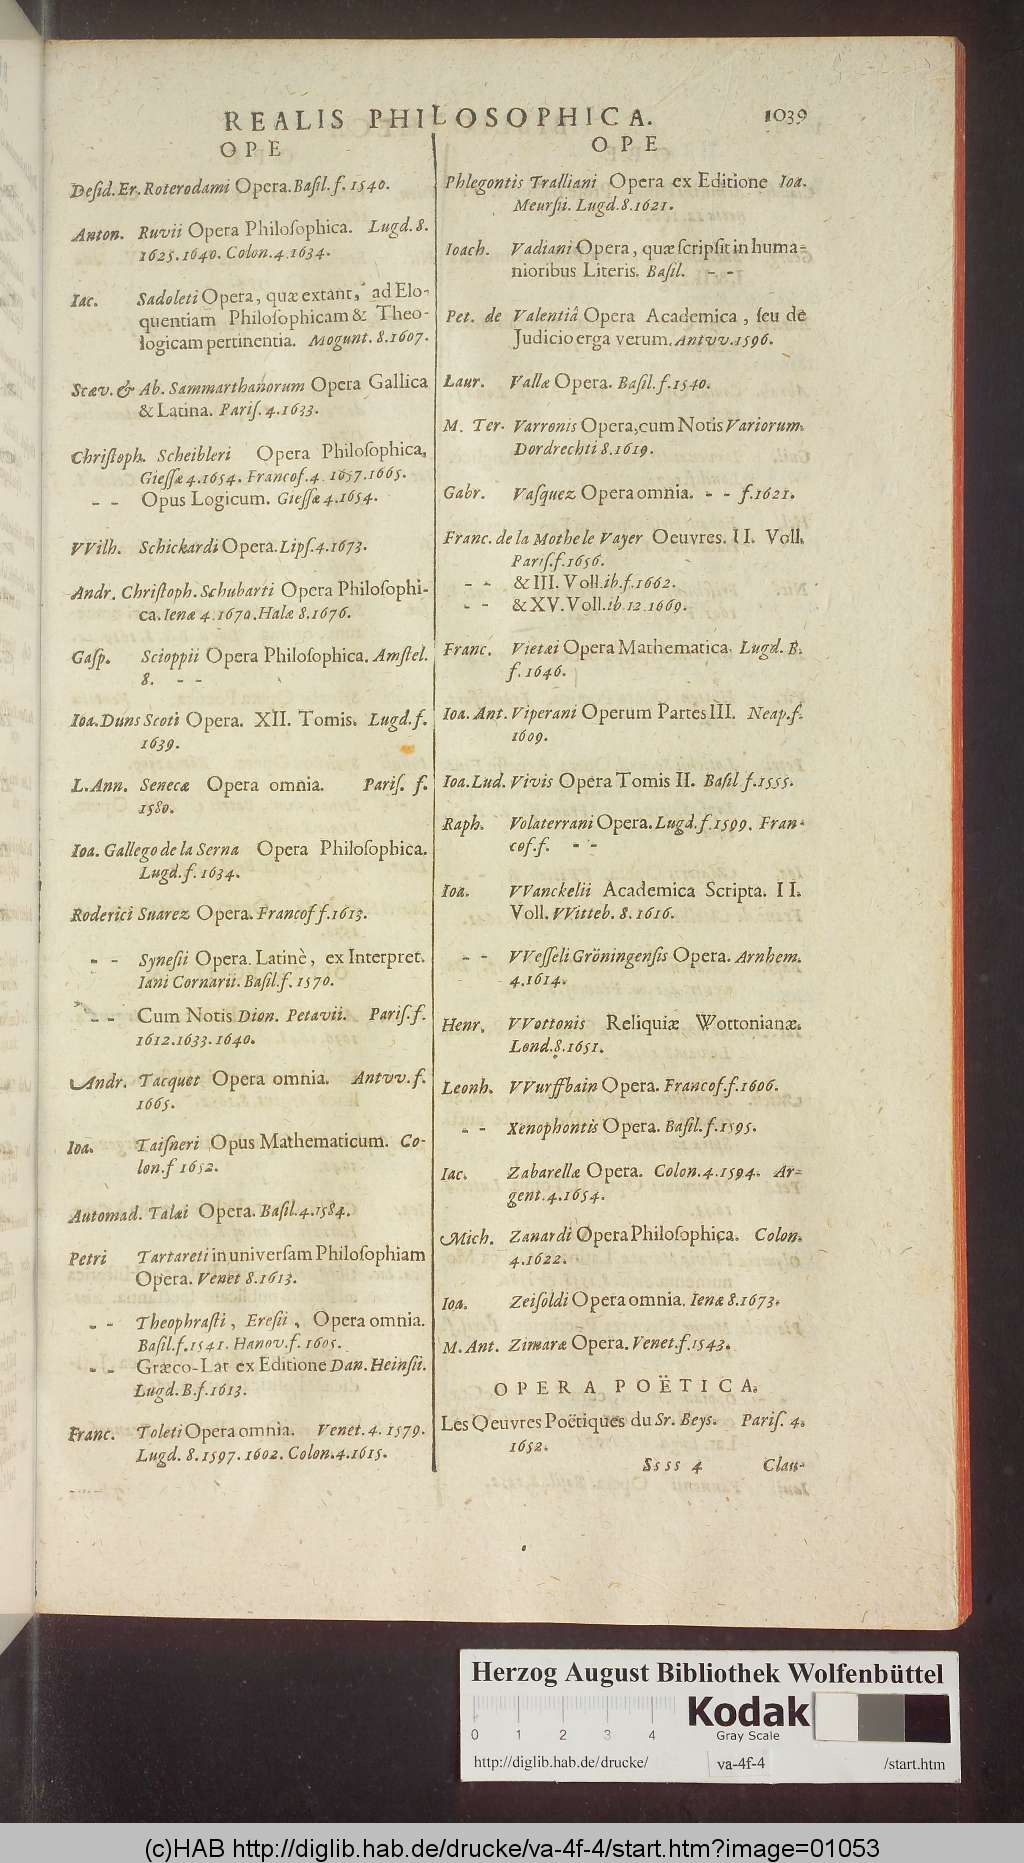 REALIS PHILOSOPHICA. 1039
OPE
Deſid. Er. Roterodami Opera. Baſil. f. 1540.
Anton. Ruvii Opera Philoſophica. Lugd. 8.
1625. 1640. Colon. 4. 1634.
Iac. Sadoleti Opera, quæ extant, ad Elo-
quentiam Philoſophicam & Theo-
logicam pertinentia. Mogunt. 8. 1607.
Scæv. & Ab. Sammarthanorum Opera Gallica
& Latina. Pariſ. 4. 1633.
Chriſtoph. Scheibleri Opera Philoſophica,
Gieſſæ 4. 1654. Francof. 4. 1657. 1665.
- - Opus Logicum. Gieſſæ 4. 1654.
VVilh. Schickardi Opera. Lipſ. 4. 1673.
Andr. Chriſtoph. Schubarti Opera Philoſophi-
ca. Ienæ 4. 1670. Halæ 8. 1676.
Gaſp. Scioppii Opera Philoſophica. Amſtel.
8. - -
Ioa. Duns Scoti Opera. XII. Tomis. Lugd. f.
1639.
L. Ann. Senecæ Opera omnia. Pariſ. f.
1580.
Ioa. Gallego de la Serna Opera Philoſophica.
Lugd. f. 1634.
Roderici Suarez Opera. Francof f. 1613.
- - Syneſii Opera. Latinè, ex Interpret.
Iani Cornarii. Baſil. f. 1570.
- - Cum Notis Dion. Petavii. Pariſ. f.
1612. 1633. 1640.
Andr. Tacquet Opera omnia. Antvv. f.
1665.
Ioa. Taiſneri Opus Mathematicum. Co-
lon. f 1652.
Automad. Talæi Opera. Baſil. 4. 1584.
Petri Tartareti in univerſam Philoſophiam
Opera. Venet 8. 1613.
- - Theophraſti, Ereſii, Opera omnia.
Baſil. f. 1541. Hanov. f. 1605.
- - Græco-Lat ex Editione Dan. Heinſii.
Lugd. B. f. 1613.
Franc. Toleti Opera omnia. Venet. 4. 1579.
Lugd. 8. 1597. 1602. Colon. 4. 1615.
OPE
Phlegontis Tralliani Opera ex Editione Ioa.
Meurſii. Lugd. 8. 1621.
Ioach. Vadiani Opera, quæ ſcripſit in huma-
nioribus Literis. Baſil. - -
Pet. de Valentiâ Opera Academica, ſeu de
Judicio erga verum. Antvv. 1596.
Laur. Vallæ Opera. Baſil. f. 1540.
M. Ter. Varronis Opera, cum Notis Variorum.
Dordrechti 8. 1619.
Gabr. Vaſquez Opera omnia. - - f. 1621.
Franc. de la Mothe le Vayer Oeuvres. II. Voll.
Pariſ. f. 1656.
- - & III. Voll. ib. f. 1662.
- - & XV. Voll. ib 12. 1669.
Franc. Vietæi Opera Mathematica. Lugd. B.
f. 1646.
Ioa. Ant. Viperani Operum Partes III. Neap. f.
1609.
Ioa. Lud. Vivis Opera Tomis II. Baſil f. 1555.
Raph. Volaterrani Opera. Lugd. f. 1599. Fran-
cof. f. - -
Ioa. VVanckelii Academica Scripta. II.
Voll. VVitteb. 8. 1616.
- - VVeſſeli Gröningenſis Opera. Arnhem.
4. 1614.
Henr. VVottonis Reliquiæ Wottonianæ.
Lond. 8. 1651.
Leonh. VVurffbain Opera. Francof. f. 1606.
- - Xenophontis Opera. Baſil. f. 1595.
Iac. Zabarellæ Opera. Colon. 4. 1594. Ar-
gent. 4. 1654.
Mich. Zanardi Opera Philoſophica. Colon.
4. 1622.
Ioa. Zeiſoldi Opera omnia. Ienæ 8. 1673.
M. Ant. Zimaræ Opera. Venet. f. 1543.
OPERA POËTICA.
Les Oeuvres Poëtiques du Sr. Beys. Pariſ. 4.
1652.
Ssss 4 Clau-
Herzog August Bibliothek Wolfenbüttel
0 1 2 3 4
Kodak
Gray Scale
http://diglib.hab.de/drucke/ va-4f-4 /start.htm
(c)HAB http://diglib.hab.de/drucke/va-4f-4/start.htm?image=01053